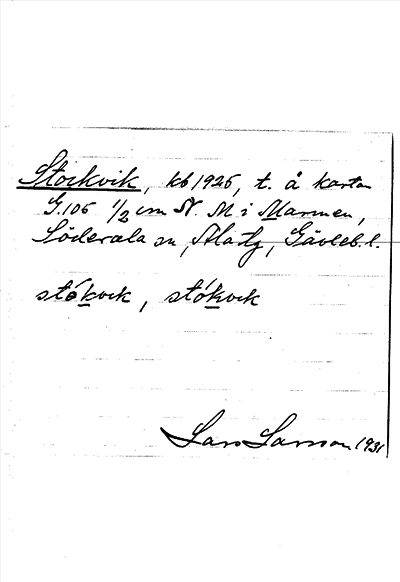 Stockvik, kb 1926, t. å kartan
G.106 1/2 cm N. M i Marmen,
Söderala sn, Ala tg, Gävleb. l.
stókvik, stókvik
Lars Larsson 1931